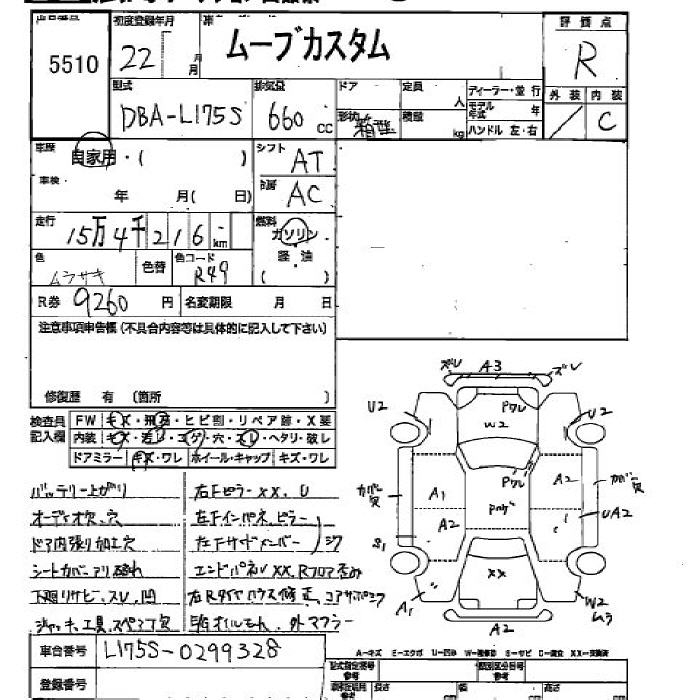 5510
初度登録年月
22
年
月
ムーブカスタム
評価点
R
型式
DBA-L175S
排気量
660 cc
ドア
形状
箱型
定員
人
積載
kg
ディーラー・並行
モデル年式 年
ハンドル 左・右
外装
内装
C
車歴
自家用・( )
シフト
AT
車検
年 月( 日)
冷房
AC
走行
15万4千216 km
燃料
ガソリン
軽油
( )
色
ムラサキ
色替
色コード
R49
R券
9260 円
名変期限 月 日
注意事項申告欄(不具合内容等は具体的に記入して下さい)
修復歴 有 (箇所 )
検査員
記入欄
FW キズ・飛石・ヒビ割・リペア跡・X要
内装 キズ・汚レ・コゲ・穴・スレ・ヘタリ・破レ
ドアミラー キズ・ワレ ホイール・キャップ キズ・ワレ
バッテリー上がり
右Fピラー XX、U
オーディオ欠、穴
左Fインパネ、ピラー
ドア内張り加工穴
左Fサイドメンバー
シートカバーアリ 破れ
エンドパネル XX、Rフロア歪み
下廻りサビ、スレ、凹
ジャッキ、工具、スペアナ欠
外マフラー
ズレ
A3
ズレ
U2
Pワレ
W2
U2
Pワレ
カバー欠
A1
A2
A2
カバー欠
UA2
S1
XX
A1
A2
W2
ムラ
車台番号
L175S-0299328
登録番号
A-キズ E-エクボ U-凹み W-補修跡 S-サビ C-腐食 XX-交換済
型式指定番号
類別区分番号
長さ
幅
高さ